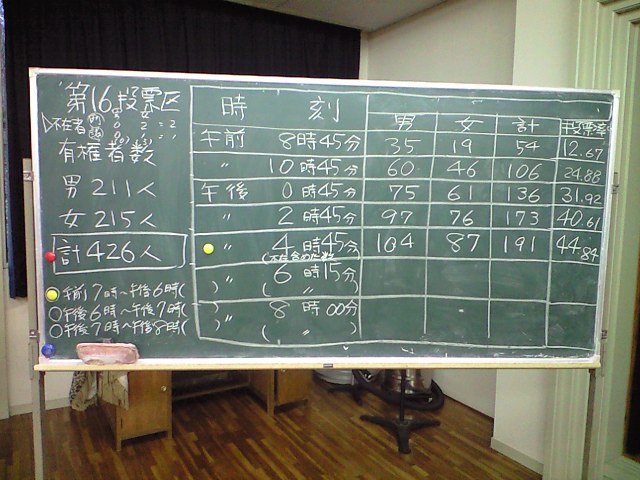 第16投票区
不在者
有権者数
男 211人
女 215人
計 426人
午前7時〜午後6時(　)
午後6時〜午後7時(　)
午後7時〜午後8時(　)
時　刻　男　女　計　投票率
午前　8時45分　35　19　54　12.67
〃　10時45分　60　46　106　24.88
午後　0時45分　75　61　136　31.92
〃　2時45分　97　76　173　40.61
〃　4時45分　104　87　191　44.84
〃　6時15分
(　〃　)
〃　8時00分
(　〃　)